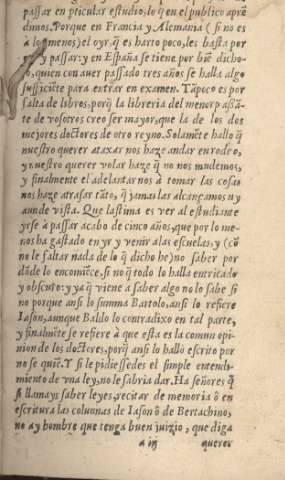 passar en pticular estudio, lo q̃ en el publico aprẽ
dimos. Porque en Francia y Alemania ( si no es
à lo menos) el oyr, q̃ es harto poco, les basta por
y passar: y en España se tiene por biẽ dicho-
o, quien con auer passado tres años se halla algo
sufficiẽte para entrar en examen. Tãpoco es por
falta de libros, porq̃ la libreria del menor passã-
te de vosotros creo ser mayor, que la de los dos
mejores doctores de otro reyno. Solamẽte hallo q̃
nuestro querer ataxar nos haze andar en rodeo,
y nuestro querer volar haze q̃ no nos mudemos,
y finalmente el adelantar nos à tomar las cosas
nos haze atrasar tãto, q̃ jamas las alcançamos ny
aun de vista. Que lastima es ver al estudiante
yrse à passar acabo de cinco años, que por lo me-
nos ha gastado en yr y venir alas escuelas, y (cõ
no le faltar nada de lo q̃ dicho he) no saber por
dõde lo encomiẽce, si no q̃ todo lo halla entricado
y obscuro: y ya q̃ viene a saber algo no lo sabe si
no porque ansi lo summa Bartolo, ansi lo refiere
Iason, aunque Baldo lo contradixo en tal parte,
y finalmẽte se refiere à que esta es la comun opi-
nion de los doctores, porq̃ ansi lo hallò escrito por
no se quiẽ. Y si le pidiessedes el simple entendi-
miento de vna ley, no le sabria dar. Ha señores q̃
si llamays saber leyes, recitar de memoria ò en
escritura las colunnas de Iason ò de Bertachino,
no ay hombre que tenga buen juizio, que diga
a iij querer